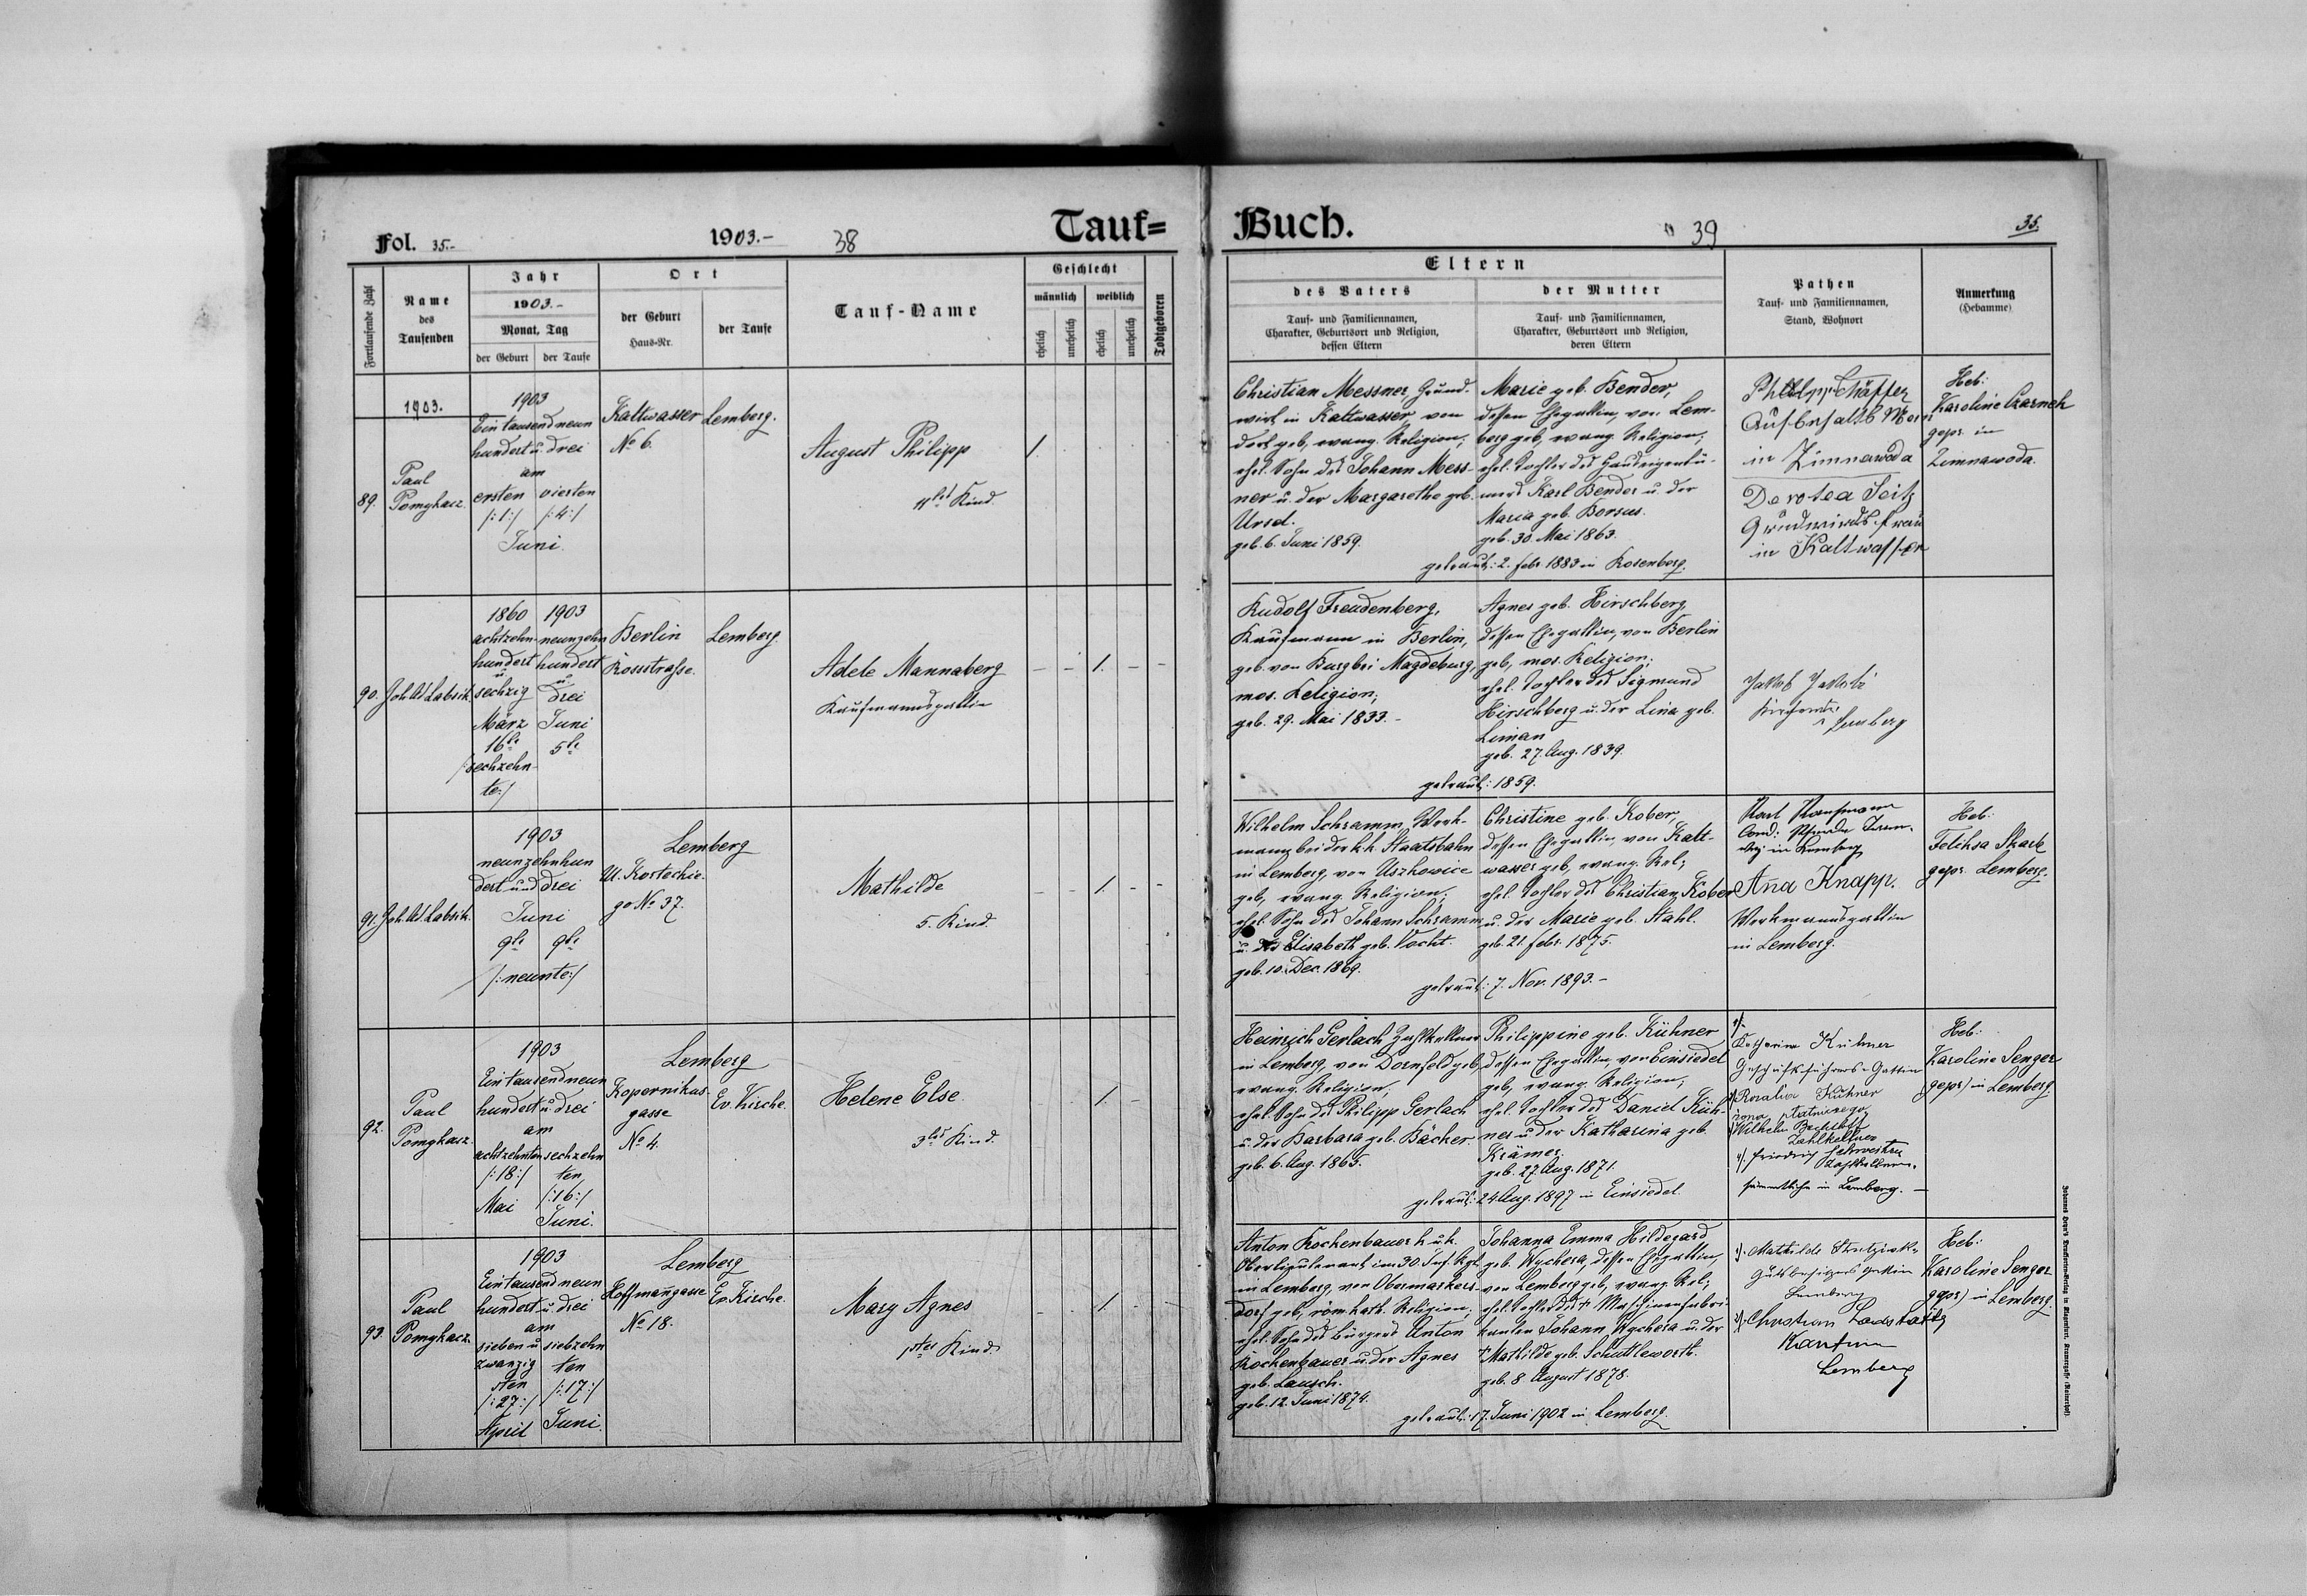 Fol. 35.-
1903.-
38
Tauf=
Fortlaufende Zahl
Name
des
Taufenden
Jahr
1903.-
Monat, Tag
der Geburt
der Taufe
Ort
der Geburt
Haus-Nr.
der Taufe
Tauf-Name
Geschlecht
männlich
weiblich
ehelich
unehelich
ehelich
unehelich
Todtgeboren
1903.
89.
Paul
Pomykacz.
1903
Ein tausend neun
hundert u. drei
am
ersten vierten
/:1:/ /:4:/
Juni.
Kaltwasser
No 6.
Lemberg.
August Philipp
11tes Kind.
1.
90.
1860 1903
achtzehn- neunzehn
hundert hundert
u. u.
sechzig drei
März Juni
16te 5te
/:sechzehn-
te:/
Berlin
Rossstrasse.
Lemberg.
Adele Mannaberg
Kaufmannsgattin
- - 1. - -
91.
1903
neunzehnhun
dert und drei
Juni
9te 9te
/:neunte:/
Lemberg
go No 37.
Mathilde
5. Kind.
- - 1. - -
92.
Paul
Pomykacz.
1903
Ein tausend neun
hundert u. drei
am
achtzehnten sechzehn
/:18:/ ten
Mai /:16:/
Juni.
Lemberg
Kopernikus-
gasse
No 4.
Ev. Kirche.
Helene Else.
3tes Kind.
- - 1. -
93.
Paul
Pomykacz.
1903
Ein tausend neun
hundert u. drei
am
sieben u. siebzehn
zwanzig ten
sten /:17:/
/:27:/
April Juni.
Lemberg
Hoffmangasse
No 18.
Ev. Kirche.
Mary Agnes
1stes Kind.
- - 1. -
Buch.
39
35.
Eltern
des Vaters
Tauf- und Familiennamen,
Charakter, Geburtsort und Religion,
dessen Eltern
der Mutter
Tauf- und Familiennamen,
Charakter, Geburtsort und Religion,
deren Eltern
Pathen
Tauf- und Familiennamen,
Stand, Wohnort
Anmerkung
(Hebamme)
Christian Messner, Grund-
wirt in Kaltwasser von
dort geb., evang. Religion;
ehel. Sohn des Johann Mess-
ner u. der Margarethe geb.
Ursel.
geb. 6. Juni 1859.
Marie geb. Bender,
dessen Ehegattin, von Lem-
berg geb., evang. Religion;
ehel. Tochter des Hauseigentü-
mers Karl Bender u. der
Maria geb. Borsus.
geb. 30. Mai 1863.
getraut: 2. Febr. 1883 in Rosenberg.
in Zimnawoda
Dorotea Seitz
Grundwirts frau
in Kaltwasser
Heb:
Karoline Czarnek
gepr. in
Zimnawoda.
Rudolf Freudenberg,
Kaufmann in Berlin,
geb. von Burg bei Magdeburg,
mos. Religion;
geb. 29. Mai 1833.-
Agnes geb. Hirschberg,
dessen Ehegattin, von Berlin
geb., mos. Religion;
ehel. Tochter des Sigmund
Hirschberg u. der Lina geb.
Liman
geb. 27. Aug. 1839.
getraut: 1859.
Lemberg
Wilhelm Schramm, Werk-
mann bei der k.k. Staatsbahn
in Lemberg, von Uszkowice
geb., evang. Religion;
ehel. Sohn des Johann Schramm
u. der Elisabeth geb. Vocht.
geb. 10. Dec. 1869.
Christine geb. Kober,
dessen Ehegattin, von Kalt-
wasser geb., evang. Rel.;
ehel. Tochter des Christian Kober
u. der Marie geb. Stahl.
geb. 21. Febr. 1875.
getraut: 7. Nov. 1893.-
in Lemberg
Aña Knapp.
Werkmannsgattin
in Lemberg.
Heb:
Feliksa Skarb
gepr. Lemberg.
Heinrich Gerlach, Zahlkellner
in Lemberg, von Dornfeld geb.,
evang. Religion;
ehel. Sohn des Philipp Gerlach
u. der Barbara geb. Bäcker.
geb. 6. Aug. 1865.
Philippine geb. Kühner
dessen Ehegattin, von Einsiedel
geb., evang. Religion;
ehel. Tochter des Daniel Küh-
ner u. der Katharina geb.
Krämer.
geb. 27. Aug. 1871.
getraut: 24. Aug. 1897 in Einsiedel.
Katharina Kühner
Geschäftsführers-Gattin
Rosalia Kühner
Wilhelm
Zahlkellner
Friedrich
Zahlkellner.
sämmtliche in Lemberg. -
Heb:
Karoline Senger
gepr) in Lemberg.
Anton Rockenbauer k. u. k.
Oberlieutenant im 30. Inf. Rgt.
in Lemberg, von Obermarkers-
dorf geb., röm. kath. Religion,
ehel. Sohn des Bürgers Anton
Rockenbauer u. der Agnes
geb. Lausch.
geb. 12. Juni 1874.
Johanna Emma Hildegard
geb. Wychera, dessen Ehegattin,
von Lemberg geb., evang. Rel.;
ehel. Tochter des † Maschinenfabri-
kanten Johann Wychera u. der
† Mathilde geb. Schuttleworth.
geb. 8. August 1878.
getraut: 17. Juni 1902 in Lemberg.
Mathilde
Gutsbesitzers Gattin
Lemberg
Christian
Lemberg
Heb:
Karoline Senger
gepr) in Lemberg.